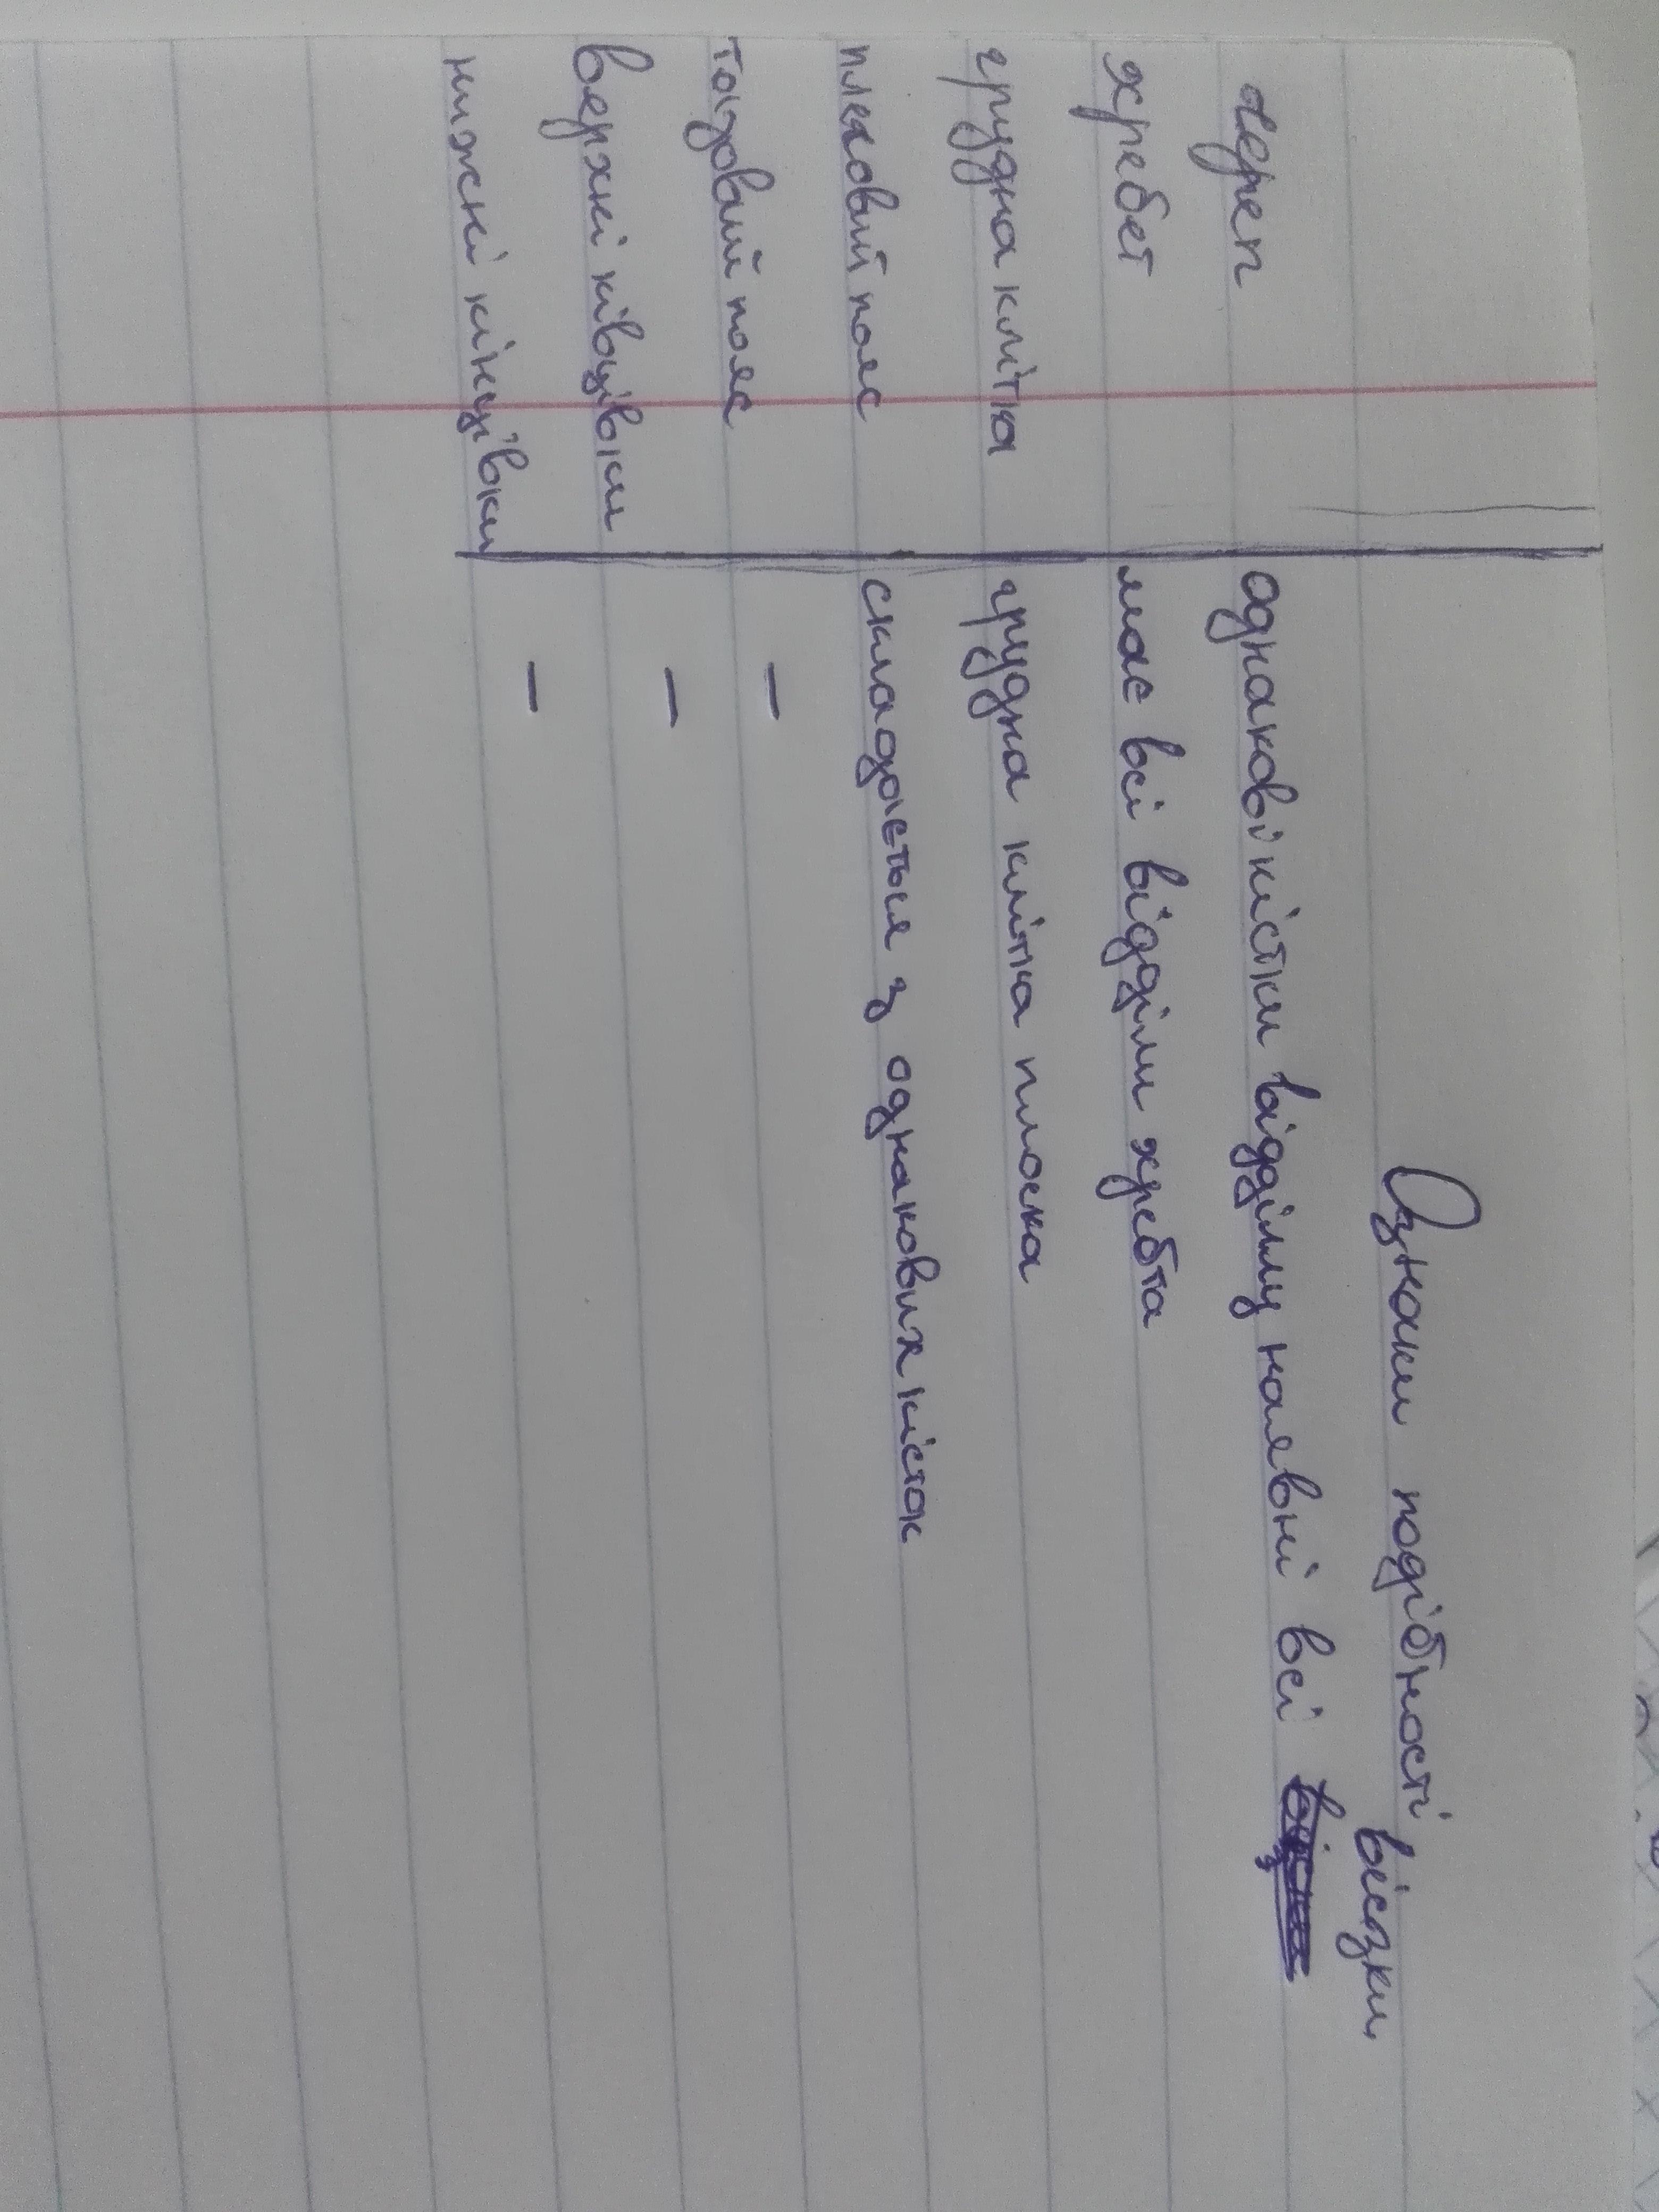 Ознаки подібності
череп однакові кістки відділу наявні всі відділи
хребет має всі відділи хребта
грудна клітка грудна клітка плоска
плечовий пояс складається з однакових кісток
тазовий пояс –
верхні ківцівки –
нижні кінцівки –